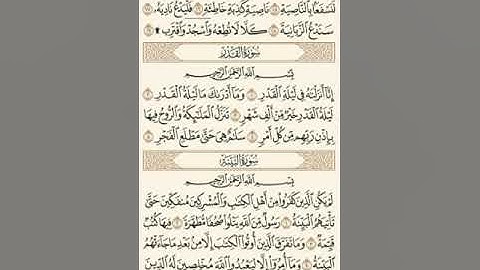 لَنَسْفَعًۢا بِٱلنَّاصِيَةِ ١٥ نَاصِيَةٍ كَٰذِبَةٍ خَاطِئَةٍ ١٦ فَلْيَدْعُ نَادِيَهُۥ ١٧
سَنَدْعُ ٱلزَّبَانِيَةَ ١٨ كَلَّا لَا تُطِعْهُ وَٱسْجُدْ وَٱقْتَرِب ۩ ١٩
سُورَةُ القَدْرِ
بِسْمِ ٱللَّهِ ٱلرَّحْمَٰنِ ٱلرَّحِيمِ
إِنَّآ أَنزَلْنَٰهُ فِى لَيْلَةِ ٱلْقَدْرِ ١ وَمَآ أَدْرَىٰكَ مَا لَيْلَةُ ٱلْقَدْرِ ٢
لَيْلَةُ ٱلْقَدْرِ خَيْرٌ مِّنْ أَلْفِ شَهْرٍ ٣ تَنَزَّلُ ٱلْمَلَٰٓئِكَةُ وَٱلرُّوحُ فِيهَا
بِإِذْنِ رَبِّهِم مِّن كُلِّ أَمْرٍ ٤ سَلَٰمٌ هِىَ حَتَّىٰ مَطْلَعِ ٱلْفَجْرِ ٥
سُورَةُ البَيِّنَةِ
بِسْمِ ٱللَّهِ ٱلرَّحْمَٰنِ ٱلرَّحِيمِ
لَمْ يَكُنِ ٱلَّذِينَ كَفَرُوا۟ مِنْ أَهْلِ ٱلْكِتَٰبِ وَٱلْمُشْرِكِينَ مُنفَكِّينَ حَتَّىٰ
تَأْتِيَهُمُ ٱلْبَيِّنَةُ ١ رَسُولٌ مِّنَ ٱللَّهِ يَتْلُوا۟ صُحُفًا مُّطَهَّرَةً ٢ فِيهَا كُتُبٌ
قَيِّمَةٌ ٣ وَمَا تَفَرَّقَ ٱلَّذِينَ أُوتُوا۟ ٱلْكِتَٰبَ إِلَّا مِنۢ بَعْدِ مَا جَآءَتْهُمُ
ٱلْبَيِّنَةُ ٤ وَمَآ أُمِرُوٓا۟ إِلَّا لِيَعْبُدُوا۟ ٱللَّهَ مُخْلِصِينَ لَهُ ٱلدِّينَ